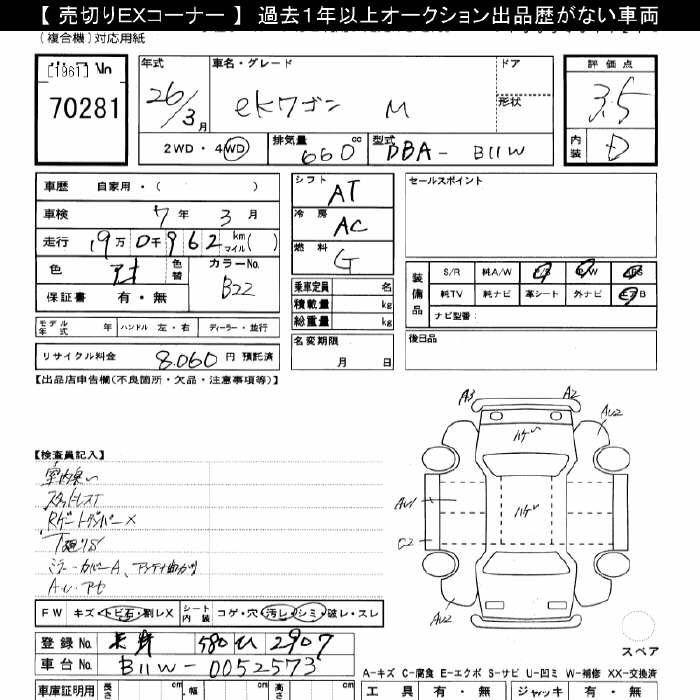 【 売切りEXコーナー 】 過去1年以上オークション出品歴がない車両
(複合機)対応用紙
[1961]
70281
年式 26/3月
車名・グレード ekワゴン M
ドア
形状
評価点 3.5
内装 D
2WD・4WD
排気量 660 cc
型式 DBA- B11W
車歴 自家用・( )
車検 7年 3月
走行 19万0千962 km マイル( )
色 アオ 色替 カラーNo. B22
保証書 有・無
シフト AT
冷房 AC
燃料 G
乗車定員 名
積載量 kg
総重量 kg
セールスポイント
装備品 S/R 純A/W P/S P/W ABS
純TV 純ナビ 革シート 外ナビ エアB
ナビ型番:
モデル年式 年 ハンドル 左・右 ディーラー・並行
リサイクル料金 8.060 円 預託済
名変期限 月 日
後日品
【出品店申告欄(不良箇所・欠品・注意事項等)】
A3 A2
AU2
ハゲ
【検査員記入】
室内臭い
スタッドレスT
Rゲートダンパー×
下廻りS
ミラーカバーA、アンテナ曲がり
AU1
ハゲ
C2
AU2
FW キズ・トビ石・割レX シート内装 コゲ・穴・汚レ・シミ・破レ・スレ
登録No. 長野 580 2907
車台No. B11W-0052573
スペア
A-キズ C-腐食 E-エクボ S-サビ U-凹ミ W-補修 XX-交換済
車庫証明用 長さ cm 幅 cm 高さ cm
工具 有・無 ジャッキ 有・無